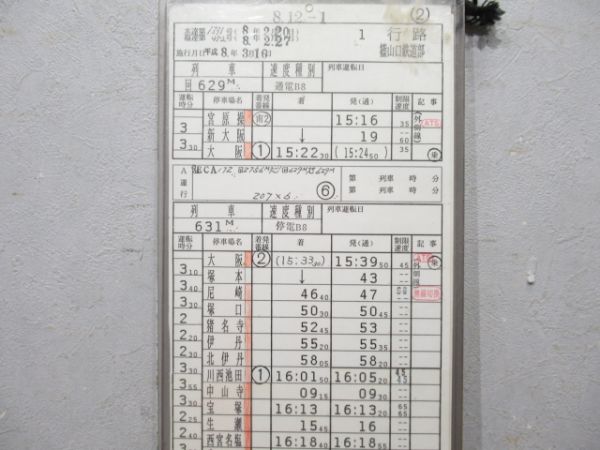 8.12-1
(2)
8.2.20
8.2.27
1 行路
施行月日 平成 8.年3月16日
福山口鉄道部
列車 速度種別 列車運転日
回629M 通電B8
運転時分 停車場名 着発番線 着 発(通) 制限速度 記事
宮原操 南2 15:16 35
3 新大阪 ↓ 19 60
3 30 大阪 ① 15:22 30 (15:24 50) 35
A運行
⑥ 第 列車 時 分
207×6 第 列車 時 分
列車 速度種別 列車運転日
631M 停電B8
運転時分 停車場名 着発番線 着 発(通) 制限速度 記事
大阪 ② 15:39 50 45
3 10 塚本 ↓ 43
3 40 尼崎 46 40 47
3 30 塚口 50 30 50 45
2 猪名寺 52 45 53
2 35 伊丹 55 20 55 35
2 30 北伊丹 58 05 58 20
3 30 川西池田 ① 16:01 50 16:05 20
3 55 中山寺 09 15 09 30
3 30 宝塚 16:13 16:13 20 65
2 25 生瀬 15 45 16
2 40 西宮名塩 16:18 40 16:18 55